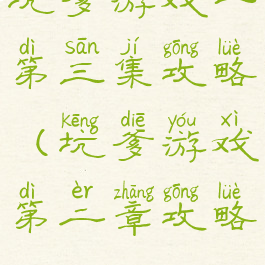 坑爹游戏
dì sān jí gōng lüè
第三集攻略
kēng diē yóu xì
(坑爹游戏
dì èr zhāng gōng lüè
第二章攻略